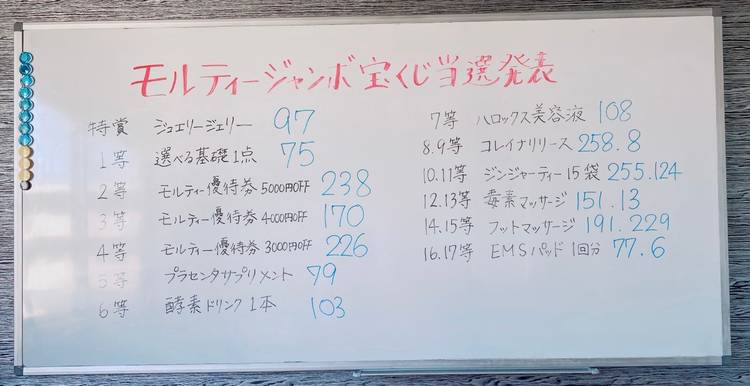 モルティージャンボ宝くじ当選発表
特賞 ジュエリージェリー 97
1等 選べる基礎1点 75
2等 モルティー優待券5000円OFF 238
3等 モルティー優待券4000円OFF 170
4等 モルティー優待券3000円OFF 226
5等 プラセンタサプリメント 79
6等 酵素ドリンク1本 103
7等 ハロックス美容液 108
8.9等 コレイナリリース 258.8
10.11等 ジンジャーティー15袋 255.124
12.13等 毒素マッサージ 151.13
14.15等 フットマッサージ 191.229
16.17等 EMSパッド1回分 77.6